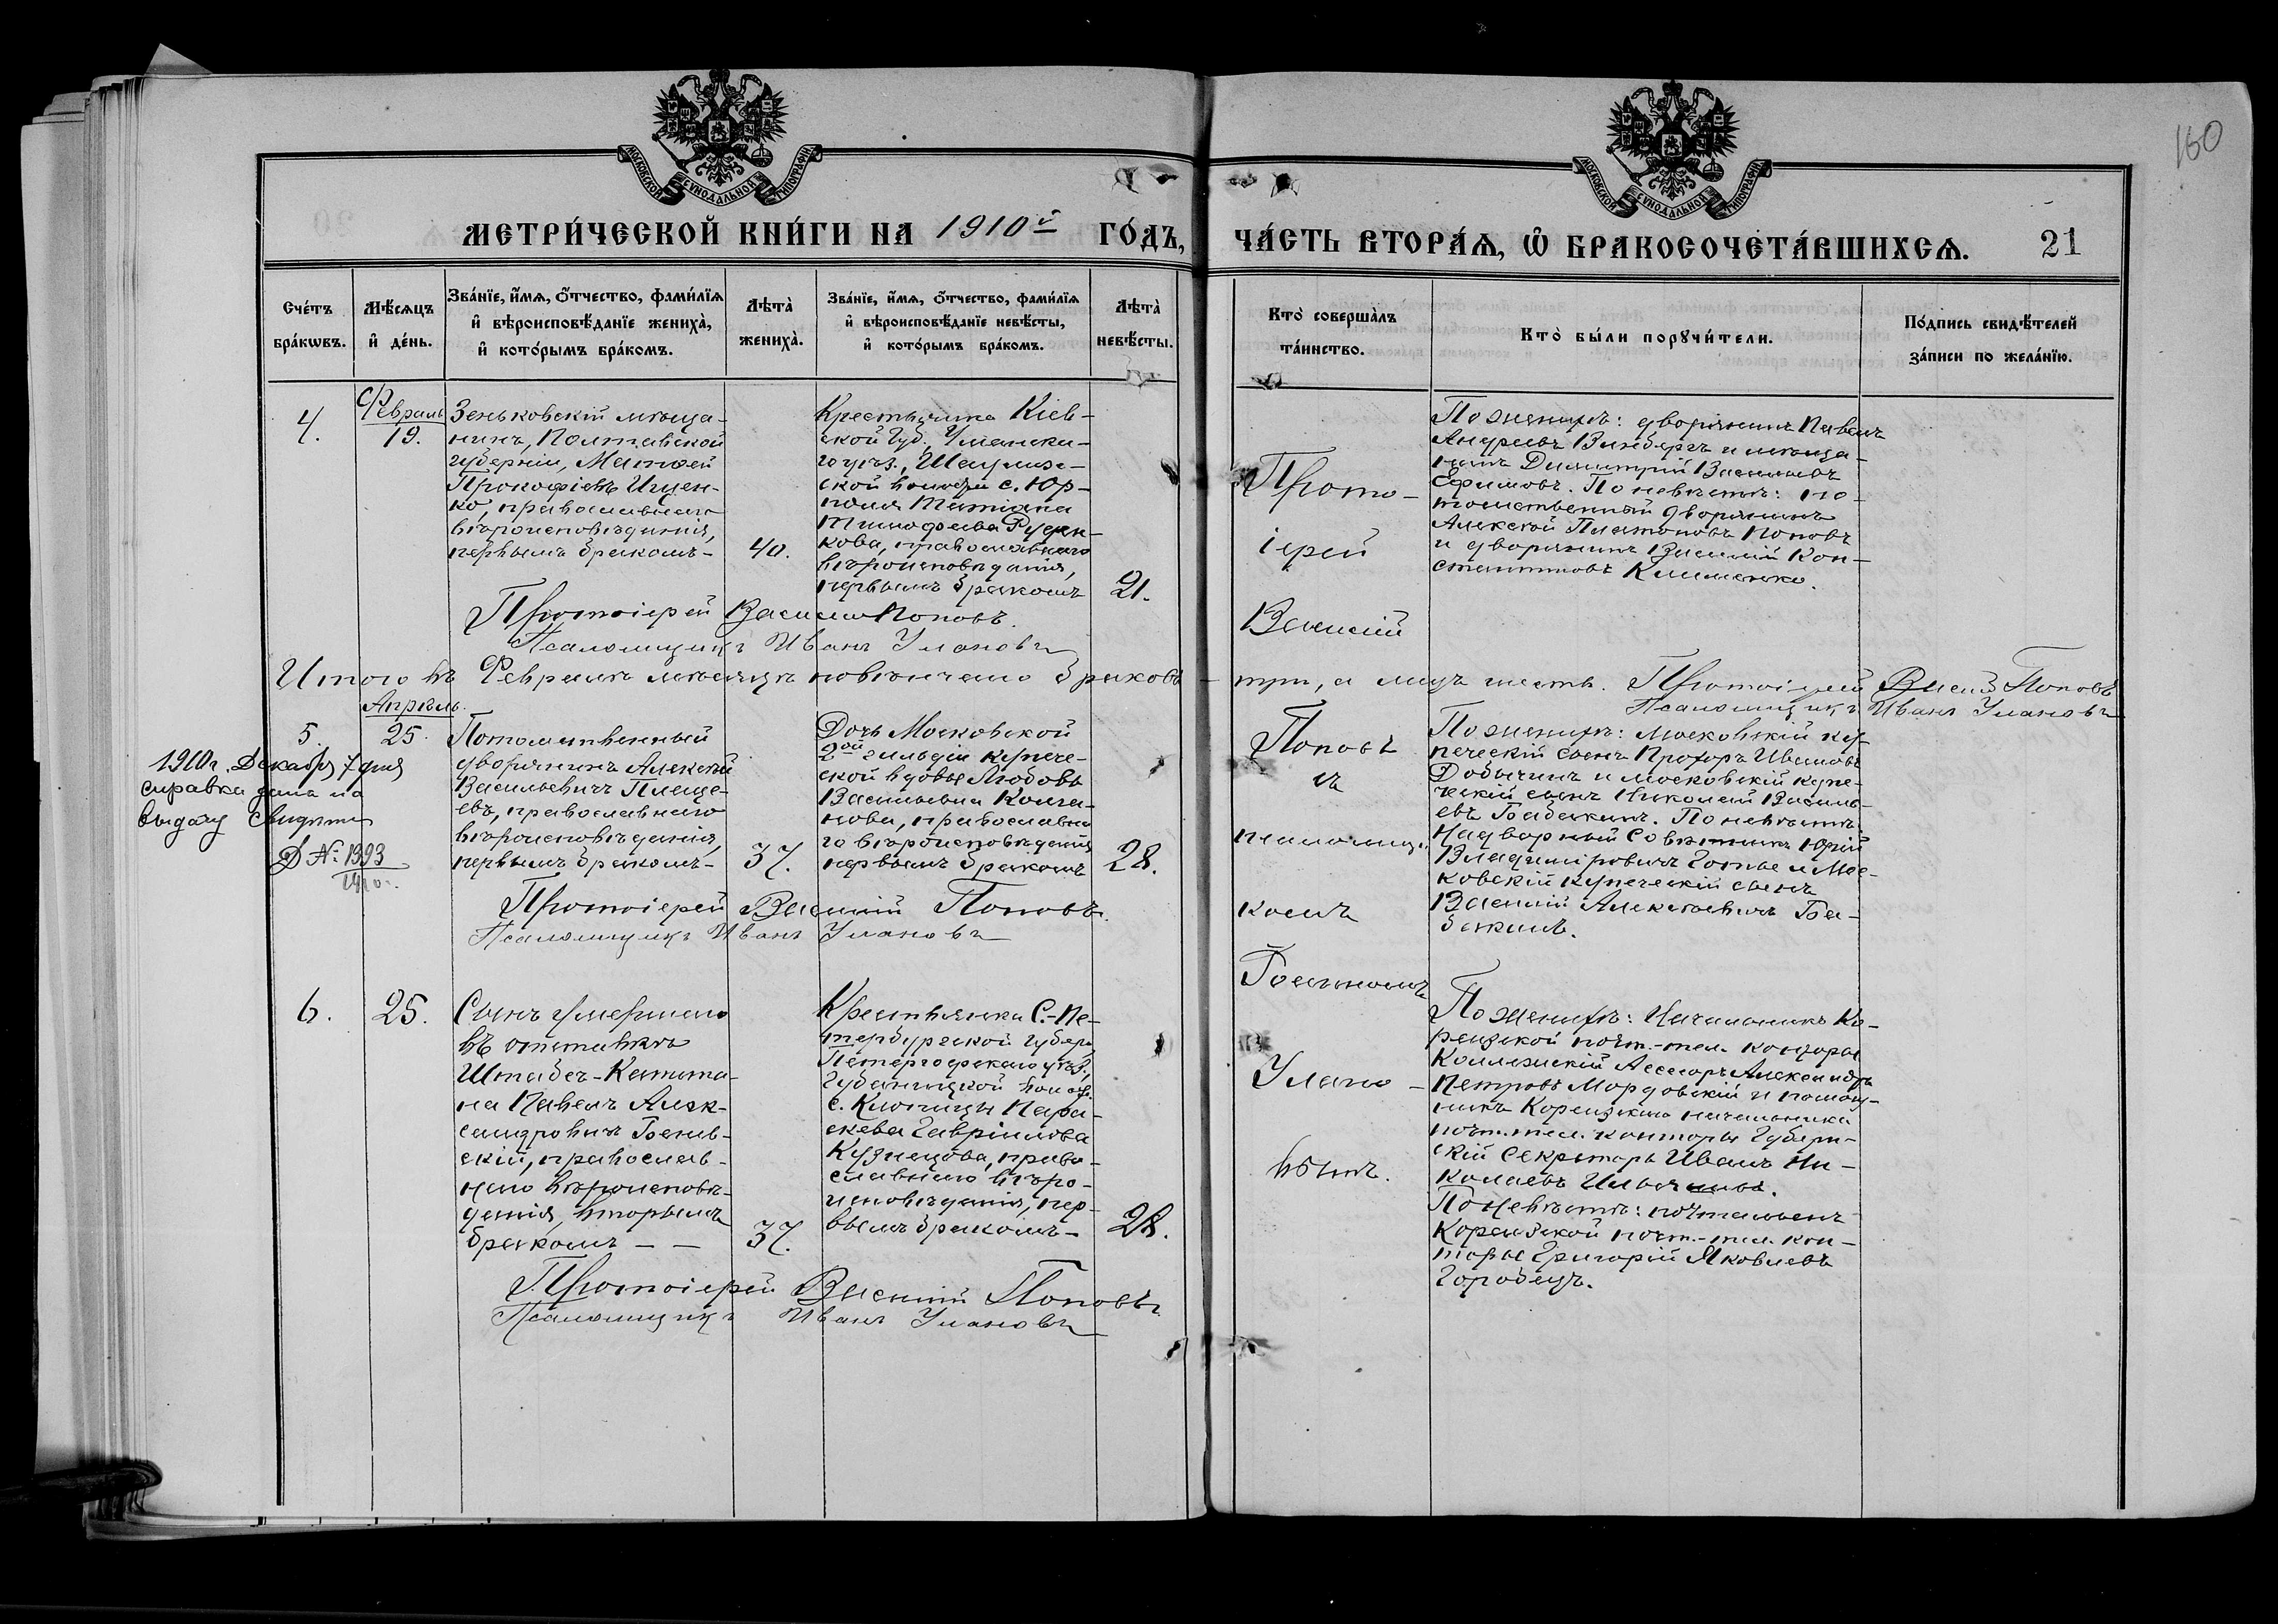 160
МОСКОВСКОЙ СѴНОДАЛЬНОЙ ТИПОГРАФІИ
МОСКОВСКОЙ СѴНОДАЛЬНОЙ ТИПОГРАФІИ
МЕТРИ́ЧЕСКОЙ КНИ́ГИ НА 1910й ГО́ДЪ,
ЧА́СТЬ ВТОРА́Ѧ, Ѽ БРАКОСОЧЕТА́ВШИХСѦ. 21
Сче́тъ
бра́кѡвъ.
Мѣ́сѧцъ
и҆ де́нь.
Зва́нїе, и҆́мѧ, ѻ҆́тчество, фами́лїѧ
и҆ вѣроисповѣ́данїе жениха̀,
и҆ кото́рымъ бра́комъ.
Лѣта̀
жениха̀.
Зва́нїе, и҆́мѧ, ѻ҆́тчество, фами́лїѧ
и҆ вѣроисповѣ́данїе невѣ́сты,
и҆ кото́рымъ бра́комъ.
Лѣта̀
невѣ́сты.
Кто̀ соверша́лъ
та́инство.
Кто̀ бы́ли порꙋчи́тели.
По́дпись свидѣ́телей
за́писи по жела́нїю.
4.
Февраль
19.
Зеньковскій мѣща-
нинъ, Полтавской
губерніи, Матѳей
Прокофіевъ Ищен-
ко, православнаго
вѣроисповѣданія,
первымъ бракомъ-
40.
Крестьянка Кіев-
ской Губ. Уманска-
го уѣз.,
ской волости с. Юр-
поля Татіана
Тимофеева Руден-
кова, православнаго
вѣроисповѣданія,
первымъ бракомъ
21.
Прото-
іерей
Василій
По женихѣ: дворянинъ Павелъ
Андреевъ Винбергъ и мѣща-
нинъ Димитрій Васильевъ
Ефимовъ. По невѣстѣ: по-
томственный дворянинъ
Алексѣй Платоновъ Поповъ
и дворянинъ Василій Кон-
стантиновъ Клименко.
Протоіерей Василій Поповъ.
Псаломщикъ Иванъ Улановъ
Итого въ Февралѣ мѣсяцѣ повѣнчано браковъ - три, а лицъ шесть. Протоіерей Василій Поповъ
Псаломщикъ Иванъ Улановъ
Апрѣль.
5. 25.
1910г. Декабря 7 дня
справка дана на
выдачу
Д №: 1393
1910г.
Потомственный
дворянинъ Алексѣй
Васильевичъ Плеще-
евъ, православнаго
вѣроисповѣданія,
первымъ бракомъ-
37.
Дочь Московской
2ой гильдіи купече-
ской вдовы Любовь
Васильевна Колга-
нова, православна
го вѣроисповѣданія
первымъ бракомъ
28.
Поповъ
съ
псаломщи-
комъ
По женихѣ: Московскій ку-
печескій сынъ Прохоръ Ивановъ
Добычинъ и Московскій купе-
ческій сынъ Николай Василь-
евъ Бабакинъ. По невѣстѣ:
Надворный Совѣтникъ Юрій
Владиміровичъ Готье и Мос-
ковскій купеческій сынъ
Василій Алексѣевичъ Ба-
бакинъ.
Протоіерей Василій Поповъ.
Псаломщикъ Иванъ Улановъ
6. 25.
Сынъ умершаго
въ отставкѣ
Штабсъ-Капита-
на Павелъ Алек-
сандровичъ
скій, православ-
наго вѣроисповѣ-
данія, вторымъ
бракомъ - -
37.
Крестьянка С.-Пе-
тербургской губерн.
Петергофскаго уѣз.,
Губаницкой волос.
с. Клопицы Пара-
скева Гавріилова
Кузнецова, право-
славнаго вѣро-
исповѣданія, пер-
вымъ бракомъ-
28.
Іоанномъ
Улано-
вымъ.
По женихѣ: Начальникъ Ко-
реизской почт.-тел. конторы
Коллежскій Ассесоръ Александръ
Петровъ Мордовскій и помощ-
никъ Кореизскаго начальника
почт.тел. конторы Губерн-
скій Секретарь Иванъ Ни-
колаевъ
По невѣстѣ: почтальонъ
Кореизской почт.-тел. кон-
торы Григорій Яковлевъ
Городецъ.
Протоіерей Василій Поповъ
Псаломщикъ Иванъ Улановъ